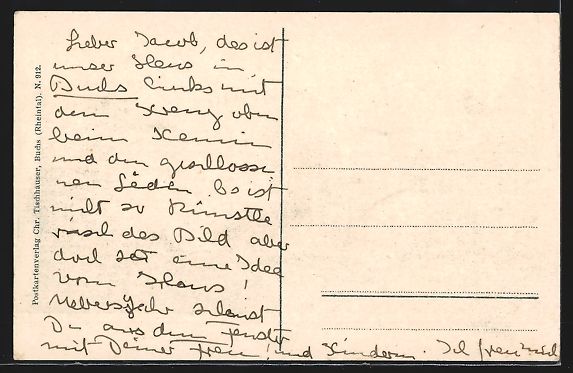 Lieber Jacob, des ist
unser Haus in
Buchs links mit
dem Kreuz oben
beim Kamin
und den geschlosse
nen Läden. Es ist
nicht so Künstle
risch des Bild aber
doch set eine Idee
vom Haus!
Uebers Jahr schaust
Du aus dem Fenster
mit Deiner Frau! und Kindern. Ich freu mich
Postkartenverlag Chr. Tischhauser, Buchs (Rheintal). N. 912.